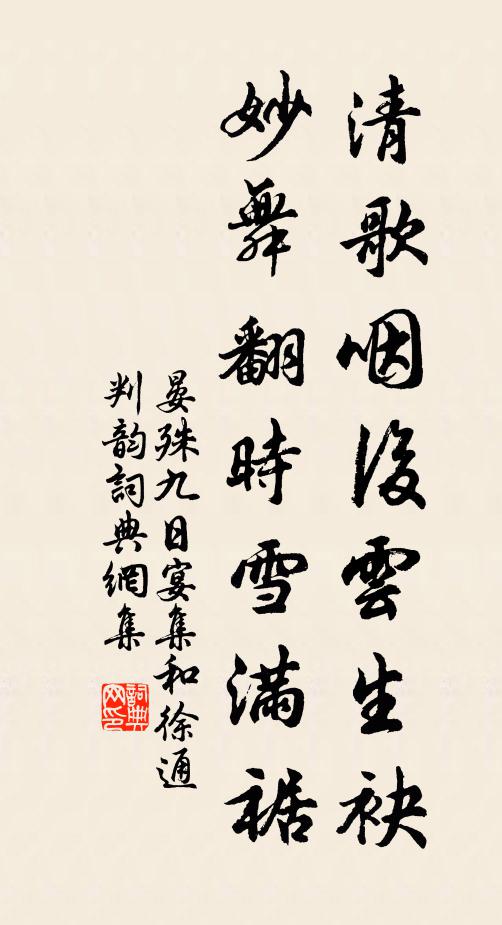 清歌咽後雲生袂
妙舞翻時雪滿裾
晏殊九日宴集和徐通
判韵詞典網集
詞典網印